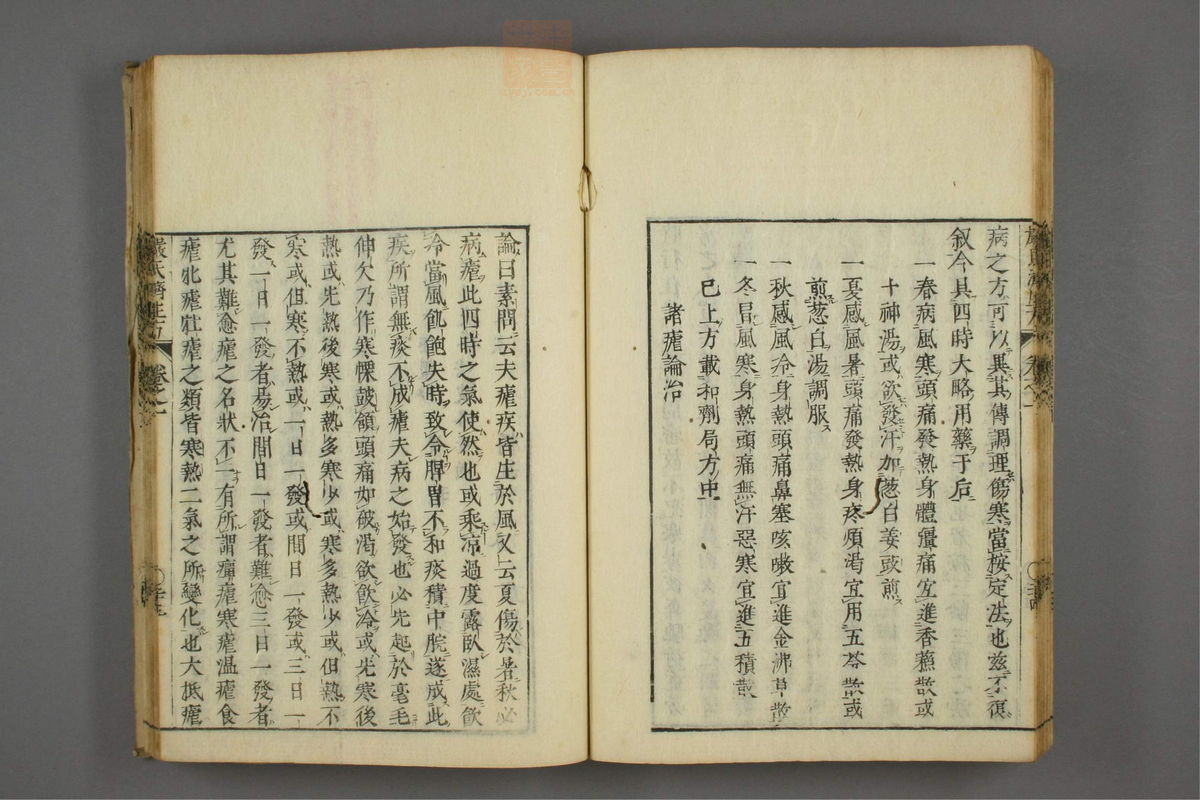 病之方可以異其傳調理傷寒當按定法也茲不復
叙今具四時大略用藥于后
一春病風寒頭痛發熱身體彊痛宜進香蘇散或
十神湯或欲發汗加葱白姜豉煎
一夏感風暑頭痛發熱身疼煩渴宜用五苓散或
煎葱白湯調服
一秋感風冷身熱頭痛鼻塞咳嗽宜進金沸草散
一冬冒風寒身熱頭痛無汗惡寒宜進五積散
已上方載和劑局方中
諸瘧論治
卷之一
論曰素問云夫瘧疾皆生於風又云夏傷於暑秋必
病瘧此四時之氣使然也或乘凉過度露臥濕處飲
冷當風飢飽失時致令脾胃不和痰積中脘遂成此
疾所謂無痰不成瘧夫病之始發也必先起於毫毛
伸欠乃作寒慄鼓頷頭痛如破渴欲飲冷或先寒後
熱或先熱後寒或熱多寒少或寒多熱少或但熱不
寒或但寒不熱或一日一發或間日一發或三日一
發一日一發者易治間日一發者難愈三日一發者
尤其難愈瘧之名狀不一有所謂癉瘧寒瘧温瘧食
瘧牝瘧牡瘧之類皆寒熱二氣之所變化也大抵瘧
嚴氏濟生方 卷之一